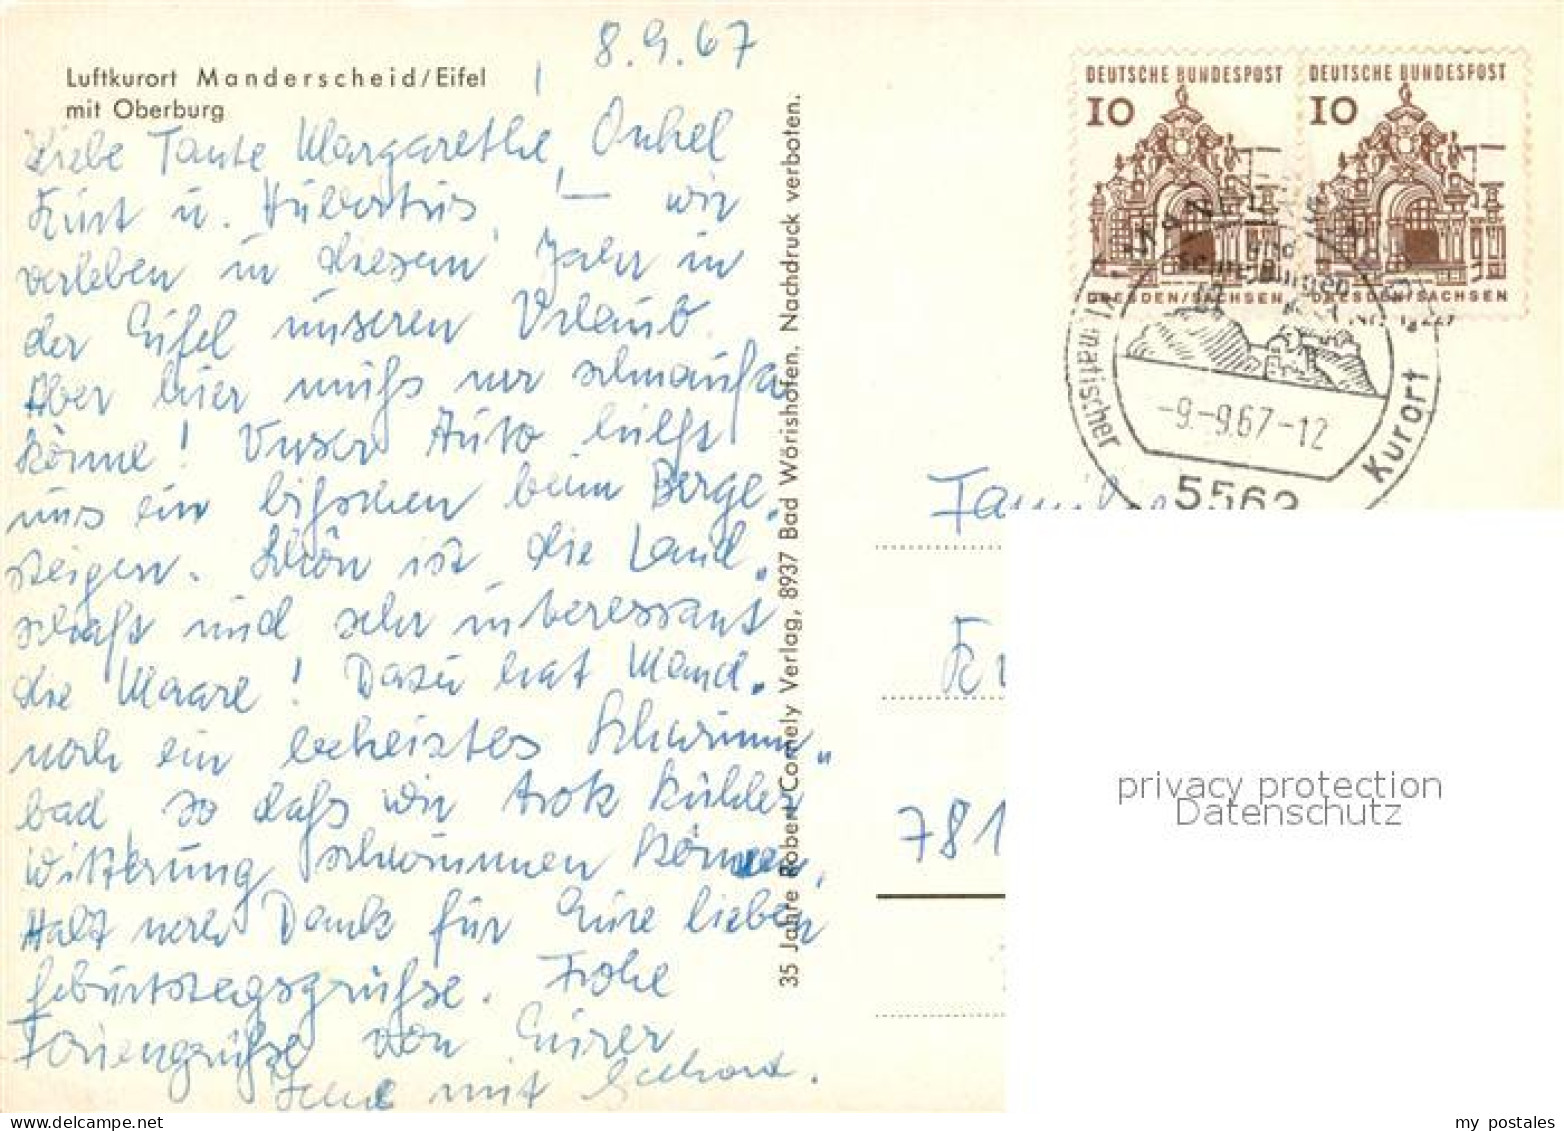 8.9.67
Luftkurort Manderscheid/Eifel
mit Oberburg
Liebe Tante Margarethe, Onkel
Kurt u. Hubertus! — wir
verleben in diesem Jahr in
der Eifel unseren Urlaub.
Aber hier muß wer schnaufen
könne! Unser Auto hilft
uns ein bißchen beim Berge-
steigen. Schön ist die Land-
schaft und sehr interessant
die Maare! Dazu hat Mand.
noch ein beheiztes Schwimm-
bad, so daß wir trotz kühler
Witterung schwimmen können.
Habt noch Dank für Eure lieben
Geburtstagsgrüße. Frohe
Feriengrüße von Eurer
mit
35 Jahre Robert Cornely Verlag, 8937 Bad Wörishofen, Nachdruck verboten.
DEUTSCHE BUNDESPOST
10
DRESDEN/SACHSEN
DEUTSCHE BUNDESPOST
10
DRESDEN/SACHSEN
Kurort
-9.-9.67-12
5562
Familie
781
privacy protection
Datenschutz
my postales